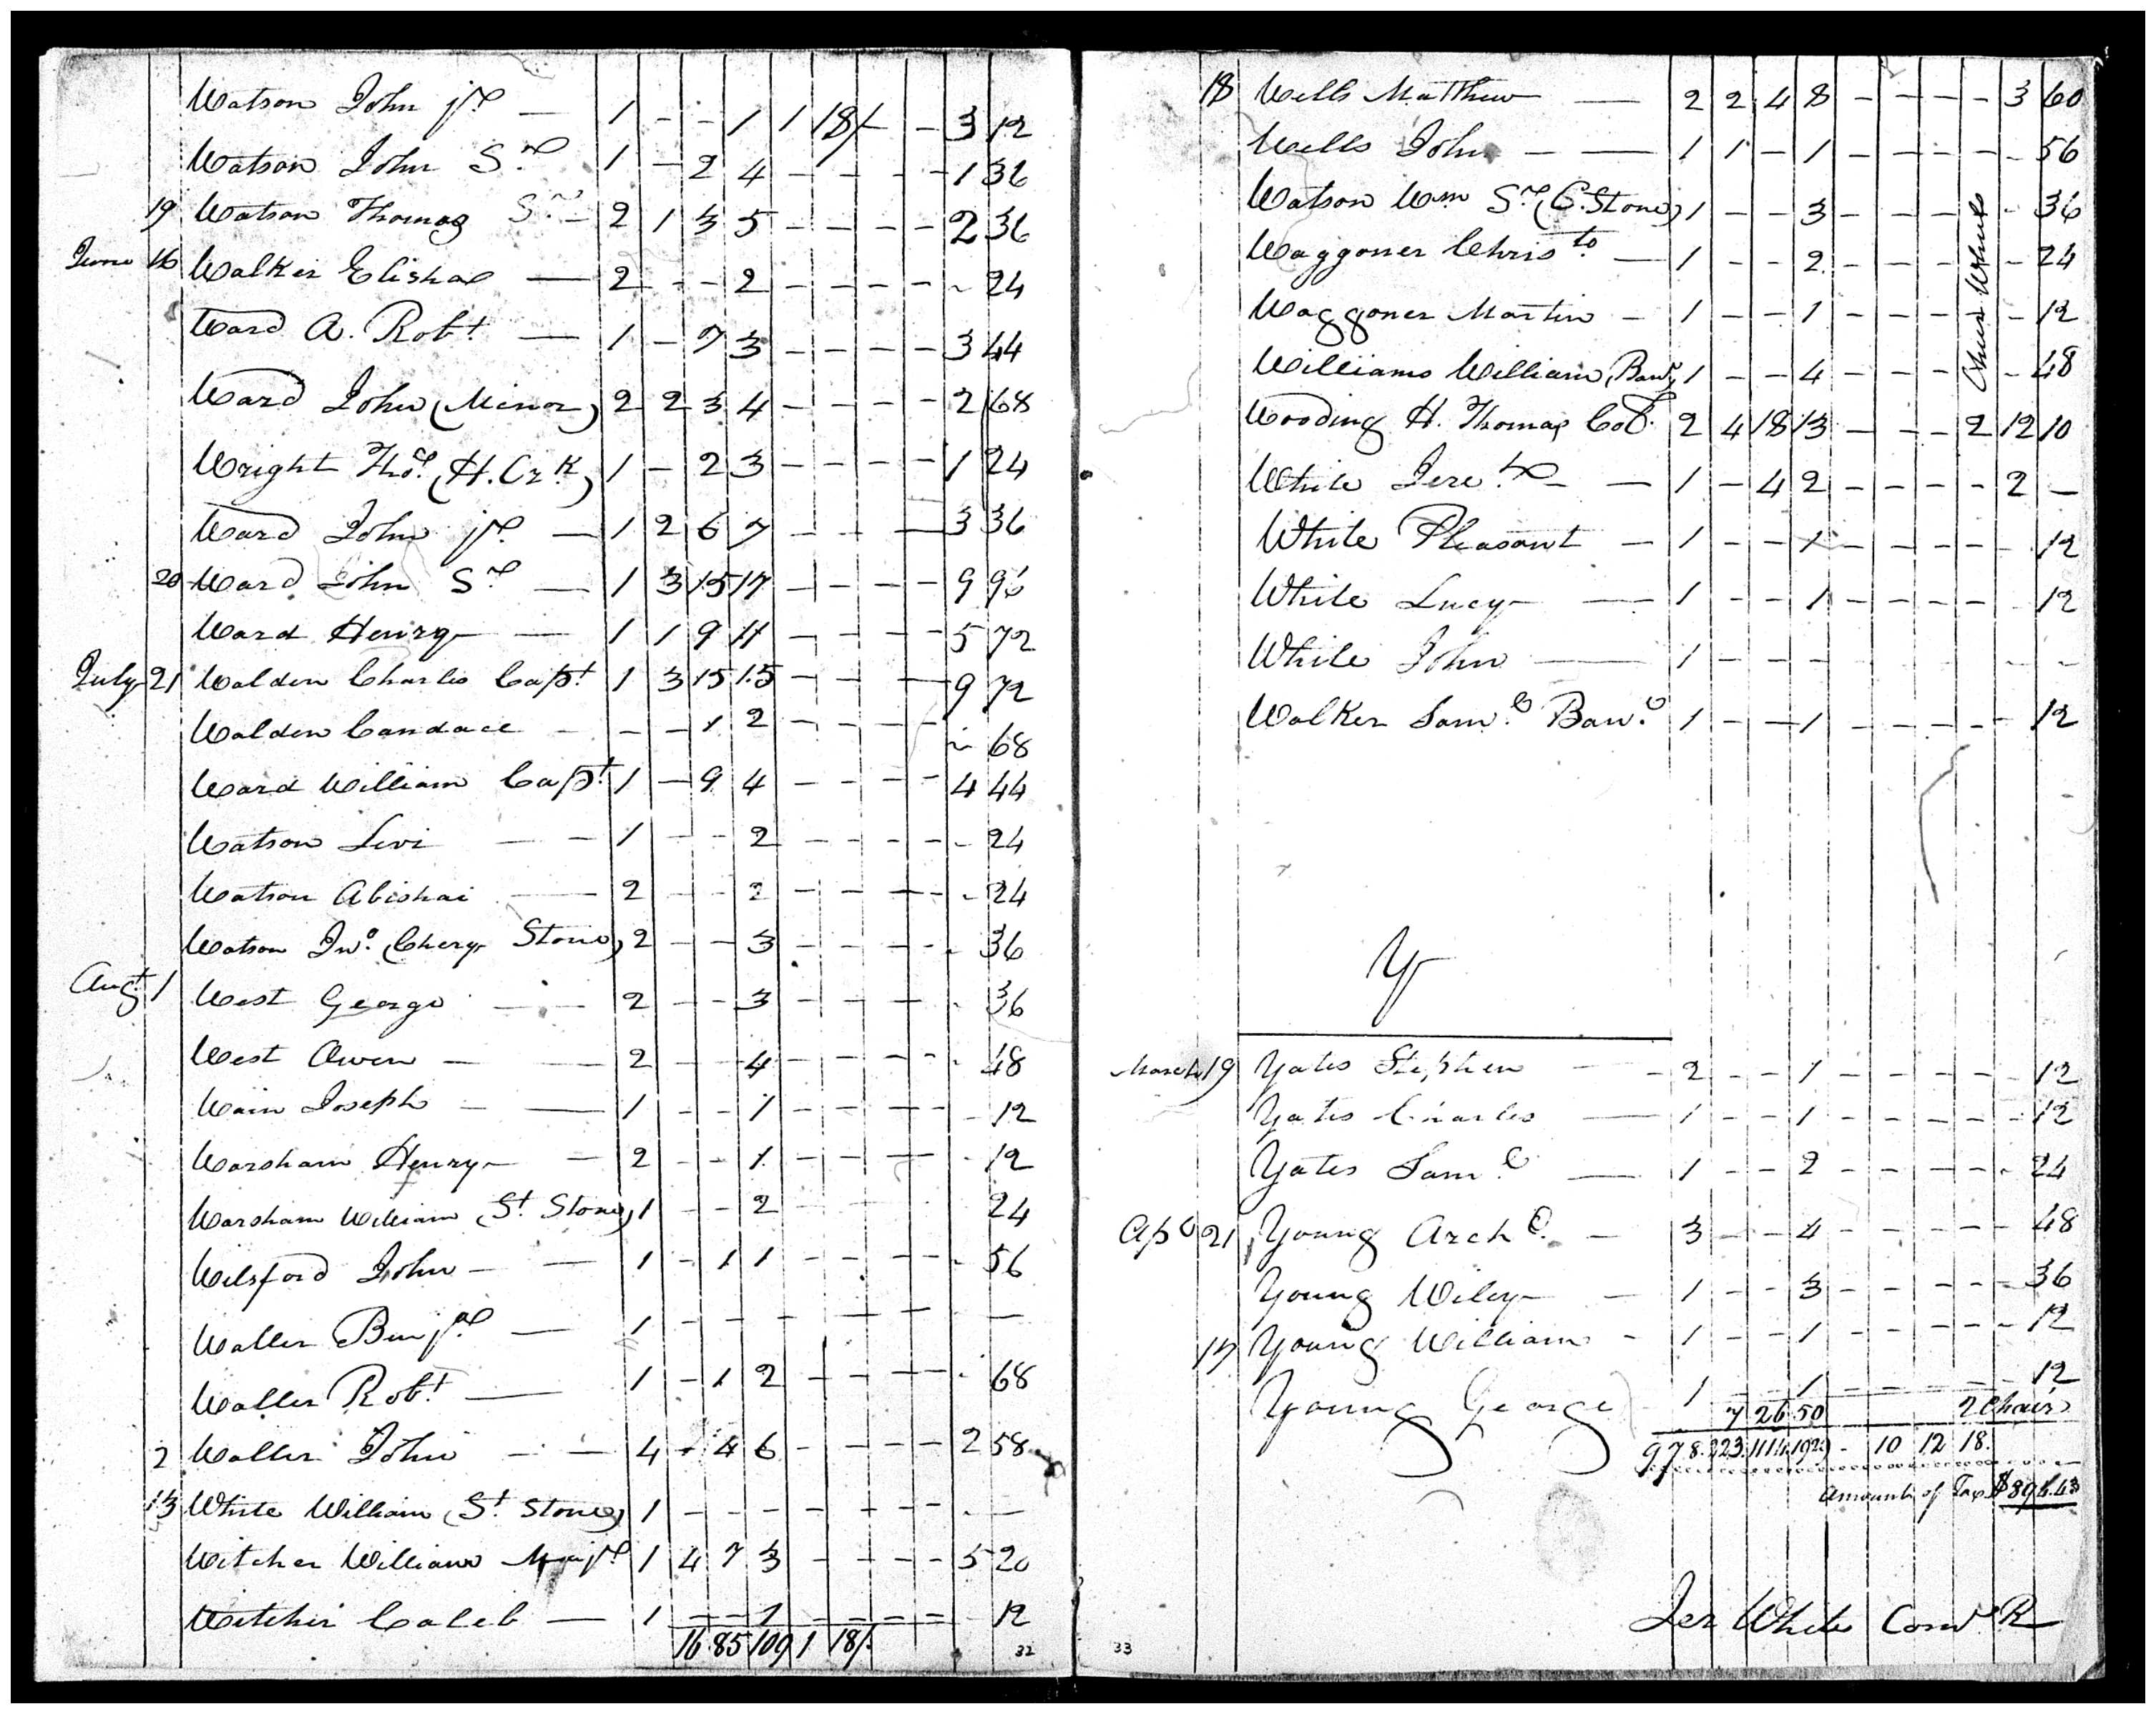 Watson John jr — 1 - - 1 1 18/- - - 3 12
Watson John Sr 1 - 2 4 - - - - 1 36
19 Watson Thomas Sr - 2 1 3 5 - - - - 2 36
June 16 Walker Elisha — 2 - - 2 - - - - - 24
Ward A. Robt — 1 - 7 3 - - - - 3 44
Ward John (Minor) 2 2 3 4 - - - - 2 68
Wright Thos (H. Crk) 1 - 2 3 - - - - 1 24
Ward John jr — 1 2 6 7 - - - 3 36
20 Ward John Sr — 1 3 15 17 - - - - 9 96
Ward Henry — 1 1 9 11 - - - - 5 72
July 21 Walden Charles Capt 1 3 15 15 - - - 9 72
Walden Candace - - - 1 2 - - - - - 68
Ward William Capt 1 - 9 4 - - - - 4 44
Watson Levi — 1 - - 2 - - - - - 24
Watson Abishai — 2 - - 2 - - - - - 24
Watson Jno. (Chery Stone) 2 - - 3 - - - - - 36
Augt 1 West George — 2 - - 3 - - - - - 36
West Owen — 2 - - 4 - - - - - 48
Wain Joseph — 1 - - 1 - - - - - 12
Warsham Henry — 2 - - 1 - - - - - 12
Warsham William (St. Stone) 1 - - 2 - - - 24
Wilsford John — 1 - 1 1 - - - - - 56
Waller Benj — 1 - - - - - - - —
Waller Robt — 1 - 1 2 - - - - - 68
2 Waller John — 4 - 4 6 - - - - 2 58
13 White William (St. Stone) 1 - - - - - - - - —
Witcher William Majr 1 4 7 3 - - - - 5 20
Witcher Caleb — 1 - - 1 - - - - 12
16 85 109 1 18/-
32
18 Wells Matthew — 2 2 4 8 - - - - 3 60
Wells John — 1 1 - 1 - - - - - 56
Watson Wm Sr (C. Stone) 1 - - 3 - - - - - 36
Waggoner Christo — 1 - - 2 - - - - 24
Waggoner Martin - 1 - - 1 - - - - 12
Williams William, Banr 1 - - 4 - - - - 48
Wheels
Wooding H. Thomas Col. 2 4 18 13 - - - 2 12 10
White Jereh — 1 - 4 2 - - - - 2 —
White Pleasant - 1 - - 1 - - - - - 12
White Lucy — 1 - - 1 - - - - - 12
White John — 1 - - - - - - - - -
Walker Saml Banr 1 - - 1 - - - - - 12
Y
March 19 Yates Stephen - 2 - - 1 - - - - - 12
Yates Charles — 1 - - 1 - - - - - 12
Yates Saml — 1 - - 2 - - - - - 24
Apl 21 Young Archd. - 3 - - 4 - - - - - 48
Young Wiley — 1 - - 3 - - - - - 36
17 Young William - 1 - - 1 - - - - - 12
Young George 1 - - 1 - - - - - 12
7 26 50 2 Chairs
978. 223. 10 12 18.
Amount of Tax $896.43
33
Jer White Comr R